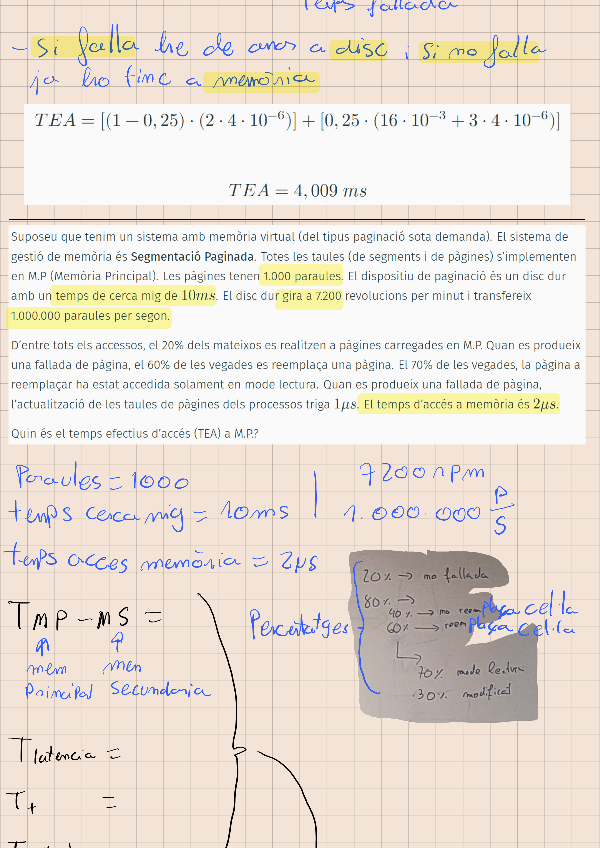 Temps fallada
- Si falla he de anar a disc i si no falla
ja ho tinc a memòria
TEA = [(1 − 0, 25) · (2 · 4 · 10⁻⁶)] + [0, 25 · (16 · 10⁻³ + 3 · 4 · 10⁻⁶)]
TEA = 4, 009 ms
Suposeu que tenim un sistema amb memòria virtual (del tipus paginació sota demanda). El sistema de
gestió de memòria és Segmentació Paginada. Totes les taules (de segments i de pàgines) s'implementen
en M.P (Memòria Principal). Les pàgines tenen 1.000 paraules. El dispositiu de paginació és un disc dur
amb un temps de cerca mig de 10ms. El disc dur gira a 7.200 revolucions per minut i transfereix
1.000.000 paraules per segon.
D'entre tots els accessos, el 20% dels mateixos es realitzen a pàgines carregades en M.P. Quan es produeix
una fallada de pàgina, el 60% de les vegades es reemplaça una pàgina. El 70% de les vegades, la pàgina a
reemplaçar ha estat accedida solament en mode lectura. Quan es produeix una fallada de pàgina,
l'actualització de les taules de pàgines dels processos triga 1μs. El temps d'accés a memòria és 2μs.
Quin és el temps efectiu d'accés (TEA) a M.P.?
Paraules = 1000
7200 rpm
temps cerca mig = 10ms
1.000.000 P/S
temps acces memòria = 2μs
20% → no fallada
80% →
40% → no reemplaça cel·la
60% → reemplaça cel·la
Percentatges
70% mode lectura
30% modificat
TMP-MS =
mem mem
Principal Secundaria
Tlatencia =
T+ =